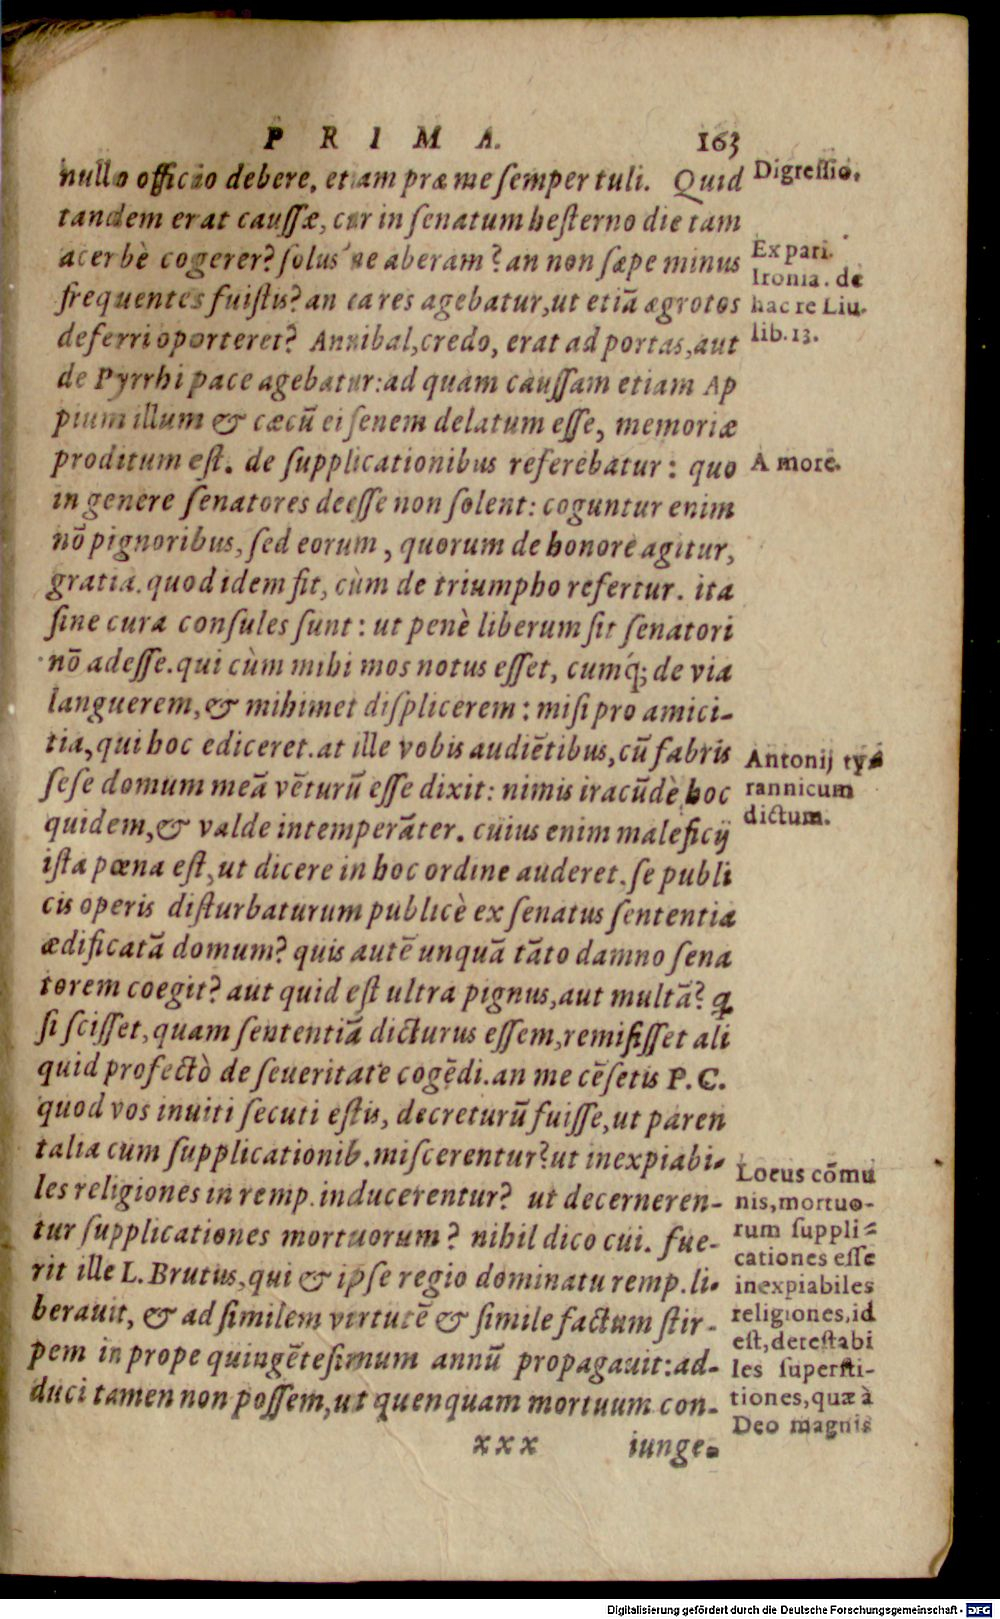 P R I M A. 163
nullo officio debere, etiam præ me ſemper tuli. Quid
tandem erat cauſſæ, cur in ſenatum heſterno die tam
acerbè cogerer? ſolus ne aberam? an non ſæpe minus
frequentes fuiſtis? an ea res agebatur, ut etiã ægrotos
deferri oporteret? Annibal, credo, erat ad portas, aut
de Pyrrhi pace agebatur: ad quam cauſſam etiam Ap
pium illum & cæcũ et ſenem delatum eſſe, memoriæ
proditum eſt. de ſupplicationibus referebatur: quo
in genere ſenatores deeſſe non ſolent: coguntur enim
nõ pignoribus, ſed eorum, quorum de honore agitur,
gratia. quod idem fit, cùm de triumpho refertur. ita
ſine cura conſules ſunt: ut penè liberum ſit ſenatori
nõ adeſſe. qui cùm mihi mos notus eſſet, cumq́; de via
languerem, & mihimet diſplicerem: miſi pro amici-
tia, qui hoc ediceret. at ille vobis audiẽtibus, cũ fabris
ſeſe domum meã vẽturũ eſſe dixit: nimis iracũdè hoc
quidem, & valde intemperãter. cuius enim maleficij
iſta pœna eſt, ut dicere in hoc ordine auderet. ſe publi
cis operis diſturbaturum publicè ex ſenatus ſententia
ædificatã domum? quis autẽ unquã tãto damno ſena
torem coegit? aut quid eſt ultra pignus, aut multã? ꝙ
ſi ſciſſet, quam ſententiã dicturus eſſem, remiſiſſet ali
quid profectò de ſeueritate cogẽdi. an me cẽſetis P. C.
quod vos inuiti ſecuti eſtis, decreturũ fuiſſe, ut paren
talia cum ſupplicationib. miſcerentur? ut inexpiabi-
les religiones in remp. inducerentur? ut decerneren-
tur ſupplicationes mortuorum? nihil dico cui. fue-
rit ille L. Brutus, qui & ipſe regio dominatu remp. li-
berauit, & ad ſimilem virtutẽ & ſimile factum ſtir-
pem in prope quingẽteſimum annũ propagauit: ad-
duci tamen non poſſem, ut quenquam mortuum con-
xxx iunge-
Digreſſio.
Ex pari.
Ironia. de
hac re Liu.
lib. 13.
A more.
Antonij ty-
rannicum
dictum.
Locus cõmu
nis, mortuo-
rum ſuppli-
cationes eſſe
inexpiabiles
religiones, id
eſt, deteſtabi
les ſuperſti-
tiones, quæ à
Deo magnis
Digitalisierung gefördert durch die Deutsche Forschungsgemeinschaft - DFG